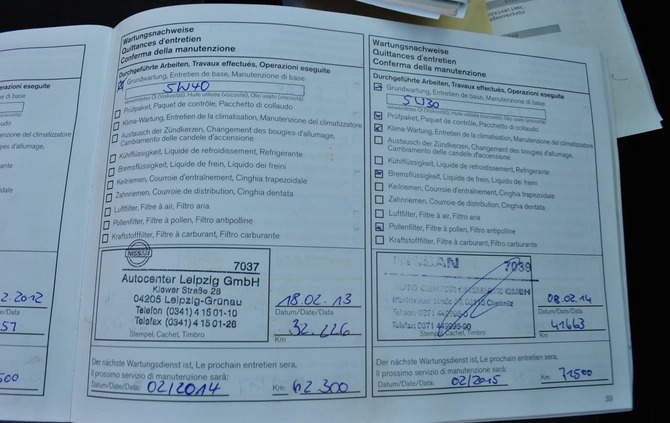 Wartungsnachweise
Quittances d'entretien
Conferma della manutenzione
Durchgeführte Arbeiten, Travaux effectués, Operazioni eseguite
Grundwartung, Entretien de base, Manutenzione di base
5W40
Prüfpaket, Paquet de contrôle, Pacchetto di collaudo
Klima-Wartung, Entretien de la climatisation, Manutenzione del climatizzatore
Austausch der Zündkerzen, Changement des bougies d'allumage,
Cambiamento delle candele d'accensione
Kühlflüssigkeit, Liquide de refroidissement, Refrigerante
Bremsflüssigkeit, Liquide de frein, Liquido dei freni
Keilriemen, Courroie d'entraînement, Cinghia trapezoidale
Zahnriemen, Courroie de distribution, Cinghia dentata
Luftfilter, Filtre à air, Filtro aria
Pollenfilter, Filtre à pollen, Filtro antipolline
Kraftstofffilter, Filtre à carburant, Filtro carburante
NISSAN
7037
Autocenter Leipzig GmbH
Kiewer Straße 28
04205 Leipzig-Grünau
Telefon (0341) 4 15 01-10
Telefax (0341) 4 15 01-26
Stempel, Cachet, Timbro
18.02.13
Datum/Date/Data
32.226
Km
Der nächste Wartungsdienst ist, Le prochain entretien sera,
Il prossimo servizio di manutenzione sarà:
Datum/Date/Data: 02/2014 Km: 62.300
Wartungsnachweise
Quittances d'entretien
Conferma della manutenzione
Durchgeführte Arbeiten, Travaux effectués, Operazioni eseguite
Grundwartung, Entretien de base, Manutenzione di base
5W30
Prüfpaket, Paquet de contrôle, Pacchetto di collaudo
Klima-Wartung, Entretien de la climatisation, Manutenzione del climatizzatore
Austausch der Zündkerzen, Changement des bougies d'allumage,
Cambiamento delle candele d'accensione
Kühlflüssigkeit, Liquide de refroidissement, Refrigerante
Bremsflüssigkeit, Liquide de frein, Liquido dei freni
Keilriemen, Courroie d'entraînement, Cinghia trapezoidale
Zahnriemen, Courroie de distribution, Cinghia dentata
Luftfilter, Filtre à air, Filtro aria
Pollenfilter, Filtre à pollen, Filtro antipolline
Kraftstofffilter, Filtre à carburant, Filtro carburante
NISSAN 7039
AUTO CENTER GMBH
Chemnitz
Telefon 0371
Telefax 0371
Stempel, Cachet, Timbro
08.02.14
Datum/Date/Data
41663
Km
Der nächste Wartungsdienst ist, Le prochain entretien sera,
Il prossimo servizio di manutenzione sarà:
Datum/Date/Data: 02/2015 Km: 71500
39